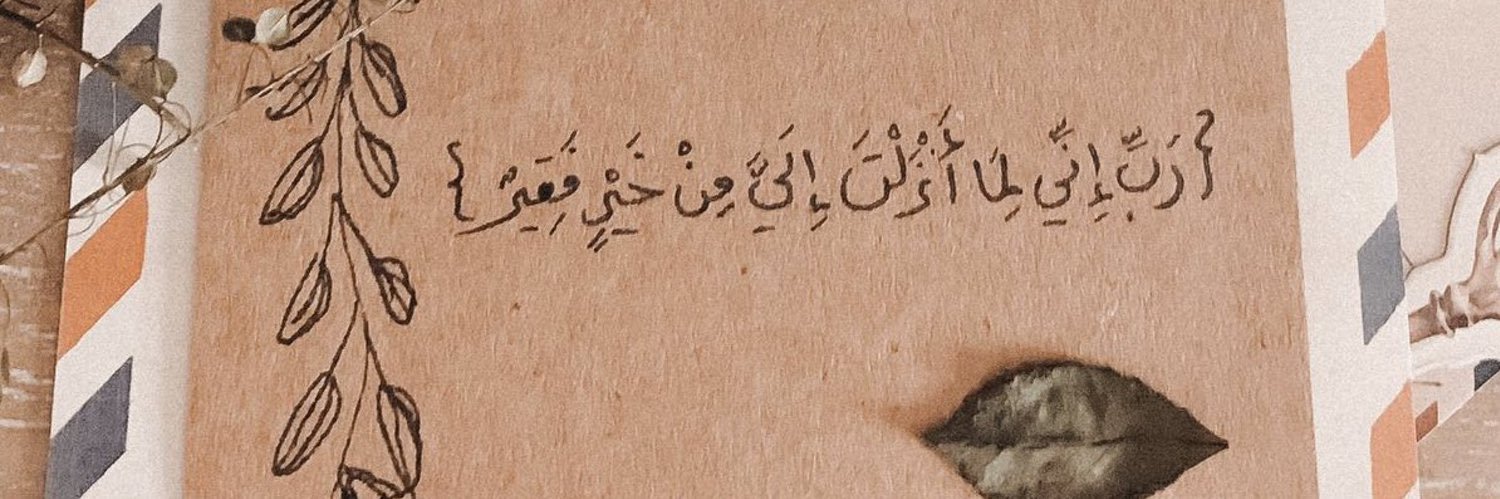 {رَبِّ إِنِّي لِمَا أَنْزَلْتَ إِلَيَّ مِنْ خَيْرٍ فَقِيرٌ}